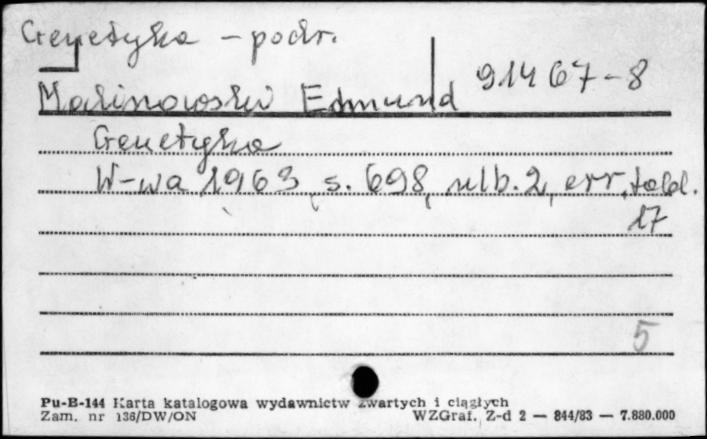 Genetyka – podr.
91467–8
Malinowski Edmund
Genetyka
W-wa 1963, s. 698, nlb. 2, err, tabl.
17
5
Pu-B-144 Karta katalogowa wydawnictw zwartych i ciągłych
Zam. nr 136/DW/ON WZGraf. Z-d 2 — 844/83 — 7.880.000